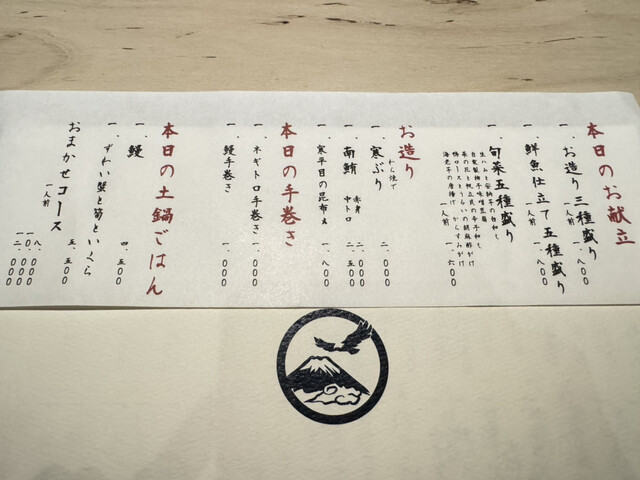 本日のお献立
一、お造り三種盛り
一人前 一、八〇〇
一、鮮魚仕立て五種盛り
一人前 一、八〇〇
一、旬菜五種盛り
一人前 一、六〇〇
お造り
一、寒ぶり
わら焼で 二、〇〇〇
一、南鮪
赤身 二、〇〇〇
中トロ 二、五〇〇
一、寒平目の昆布〆 一、八〇〇
本日の手巻き
一、ネギトロ手巻き 一、〇〇〇
一、鰻手巻き 一、〇〇〇
本日の土鍋ごはん
一、鰻 四、五〇〇
一、ずわい蟹と筍といくら 五、五〇〇
おまかせコース
一人前
八、〇〇〇
一〇、〇〇〇
一二、〇〇〇